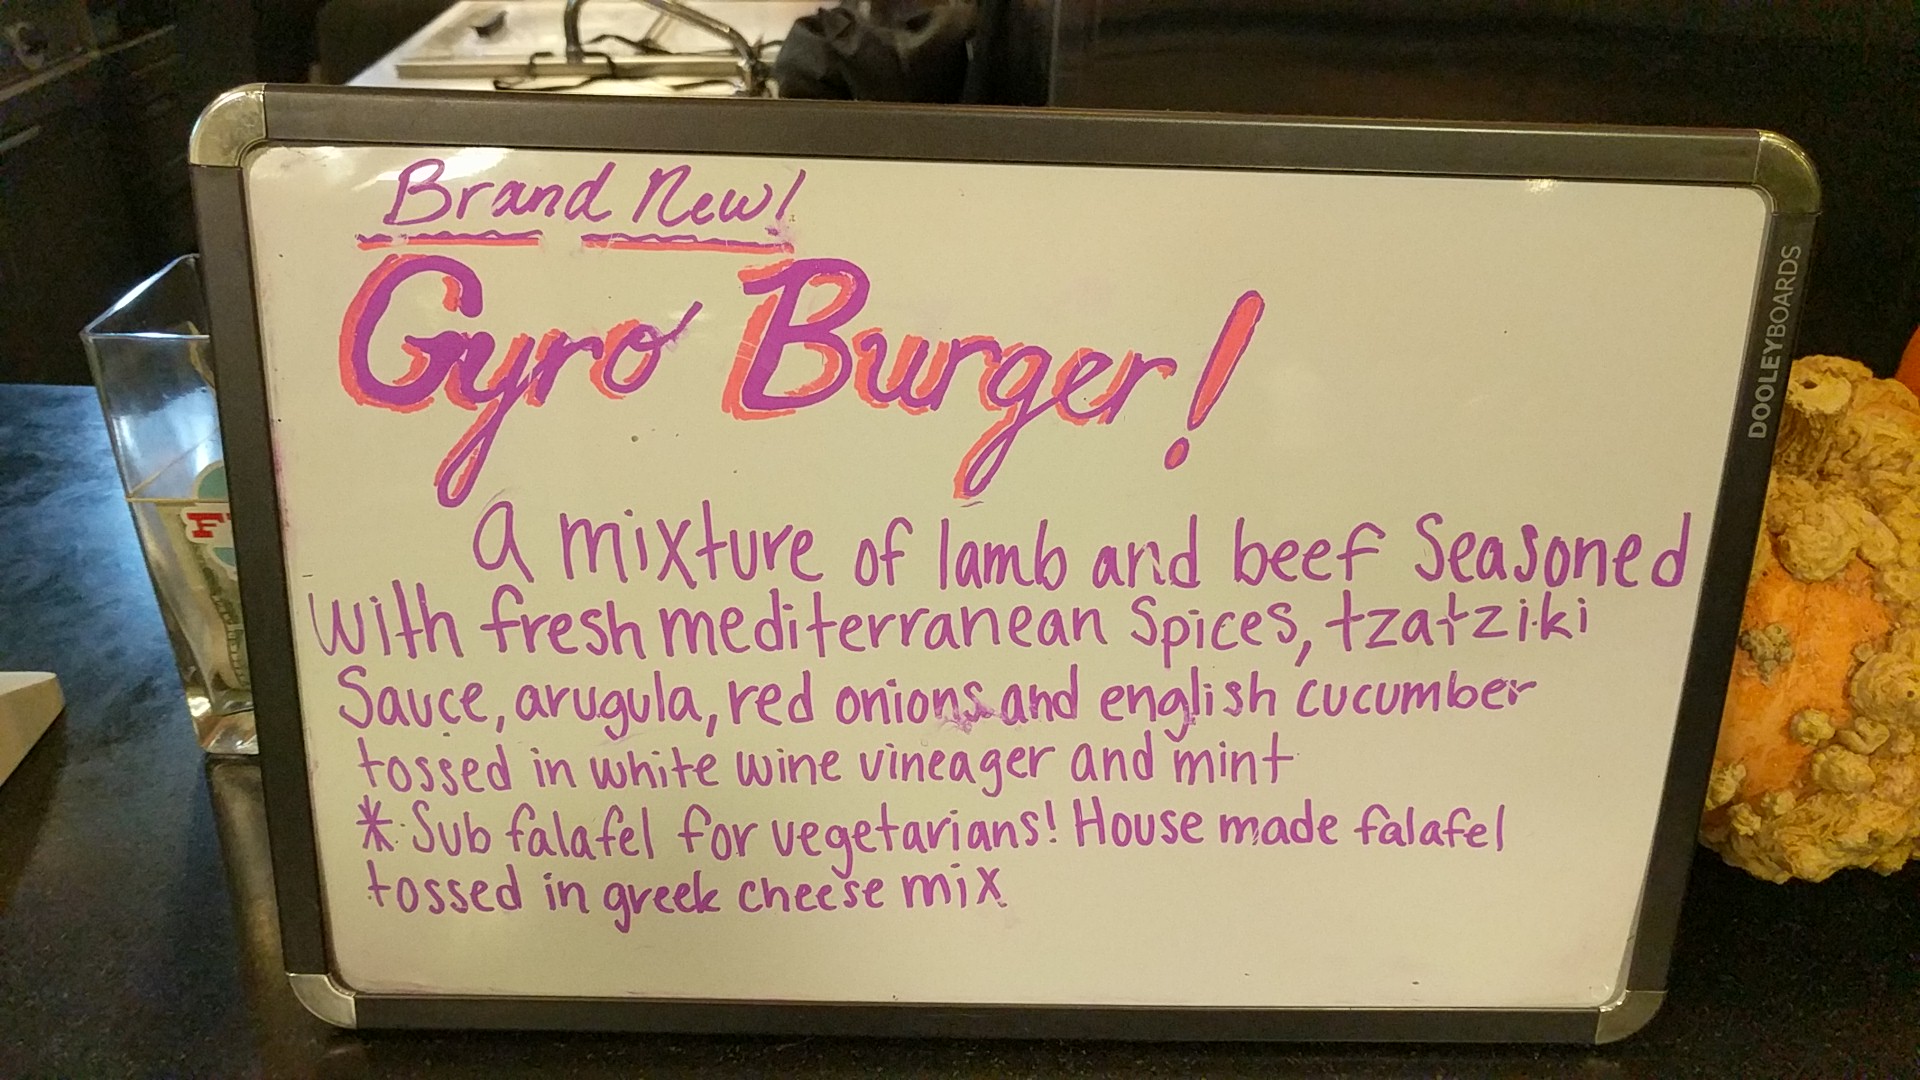 Brand New!
Gyro Burger!
A mixture of lamb and beef Seasoned
with fresh mediterranean Spices, tzatziki
Sauce, arugula, red onions and english cucumber
tossed in white wine vineager and mint
* Sub falafel for vegetarians! House made falafel
tossed in greek cheese mix
DOOLEYBOARDS